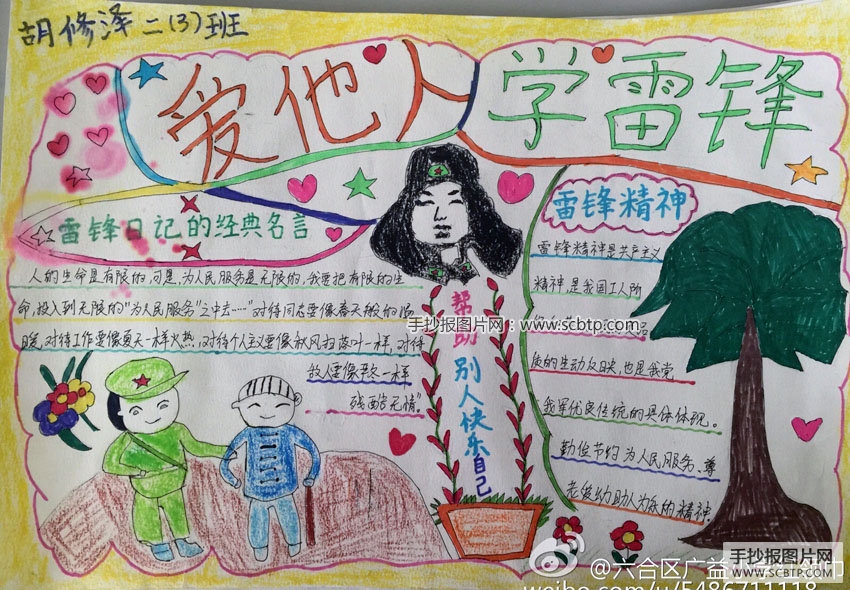 胡修泽二(3)班
爱他人 学雷锋
雷锋日记的经典名言
人的生命是有限的,可是,为人民服务是无限的,我要把有限的生
命,投入到无限的"为人民服务"之中去……"对待同志要像春天般的温
暖,对待工作要像夏天一样火热,对待个人主义要像秋风扫落叶一样,对待
敌人要像严冬一样
残酷无情"。
帮助别人快乐自己
雷锋精神
雷锋精神是共产主义
精神,是我国工人阶
质的生动反映,也是我党
我军优良传统的具体体现。
勤俭节约为人民服务、尊
老爱幼助人为乐的精神。
手抄报图片网:www.scbtp.com
@六合区广益
weibo.com/u/5486711118
手抄报图片网
WWW.SCBTP.COM